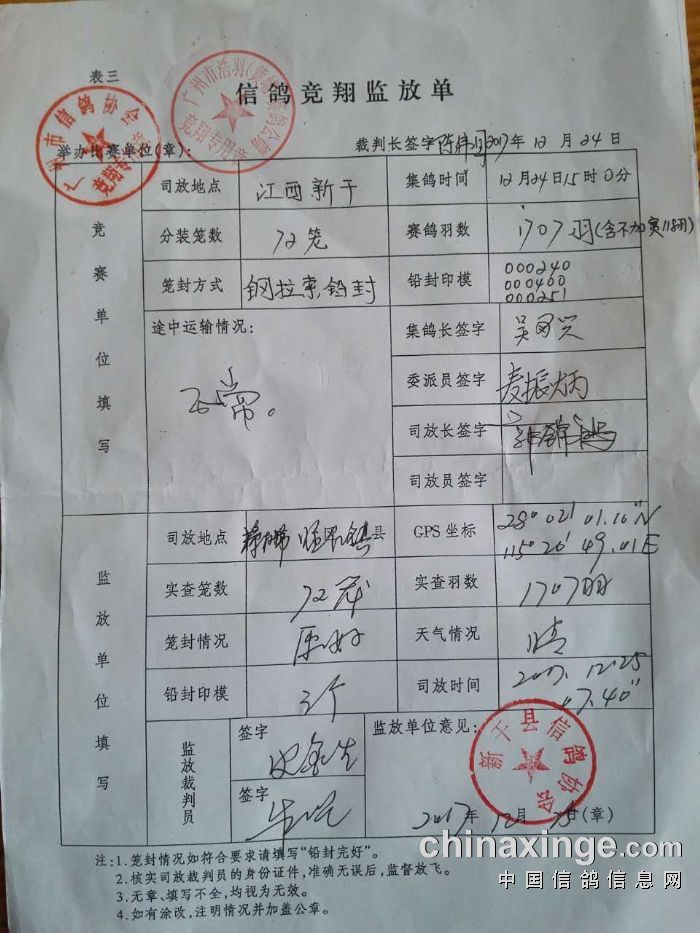 表三
信鸽竞翔监放单
广州市信鸽协会
竞翔专用章
广州市浩羽(
竞翔专用章
举办比赛单位(章): 裁判长签字 2017年12月24日
竞赛单位填写
司放地点 江西新干 集鸽时间 12月24日15时0分
分装笼数 72笼 赛鸽羽数 1707羽(含不加奖118羽)
笼封方式 钢拉索铅封 铅封印模 000240
000400
000251
途中运输情况: 正常。
集鸽长签字
委派员签字 麦振炳
司放长签字
司放员签字
监放单位填写
司放地点 樟树市 镇县 GPS坐标 28° 02' 01.10"N
115° 26' 49.01E
实查笼数 72笼 实查羽数 1707羽
笼封情况 原好 天气情况 晴
铅封印模 3个 司放时间 2017.12.25
07.40"
监放裁判员
签字
签字
监放单位意见:
新干县信鸽协会
2017年12月25日(章)
注:1.笼封情况如符合要求请填写“铅封完好”。
2.核实司放裁判员的身份证件,准确无误后,监督放飞。
3.无章、填写不全,均视为无效。
4.如有涂改,注明情况并加盖公章。
chinaxinge.com
中国信鸽信息网